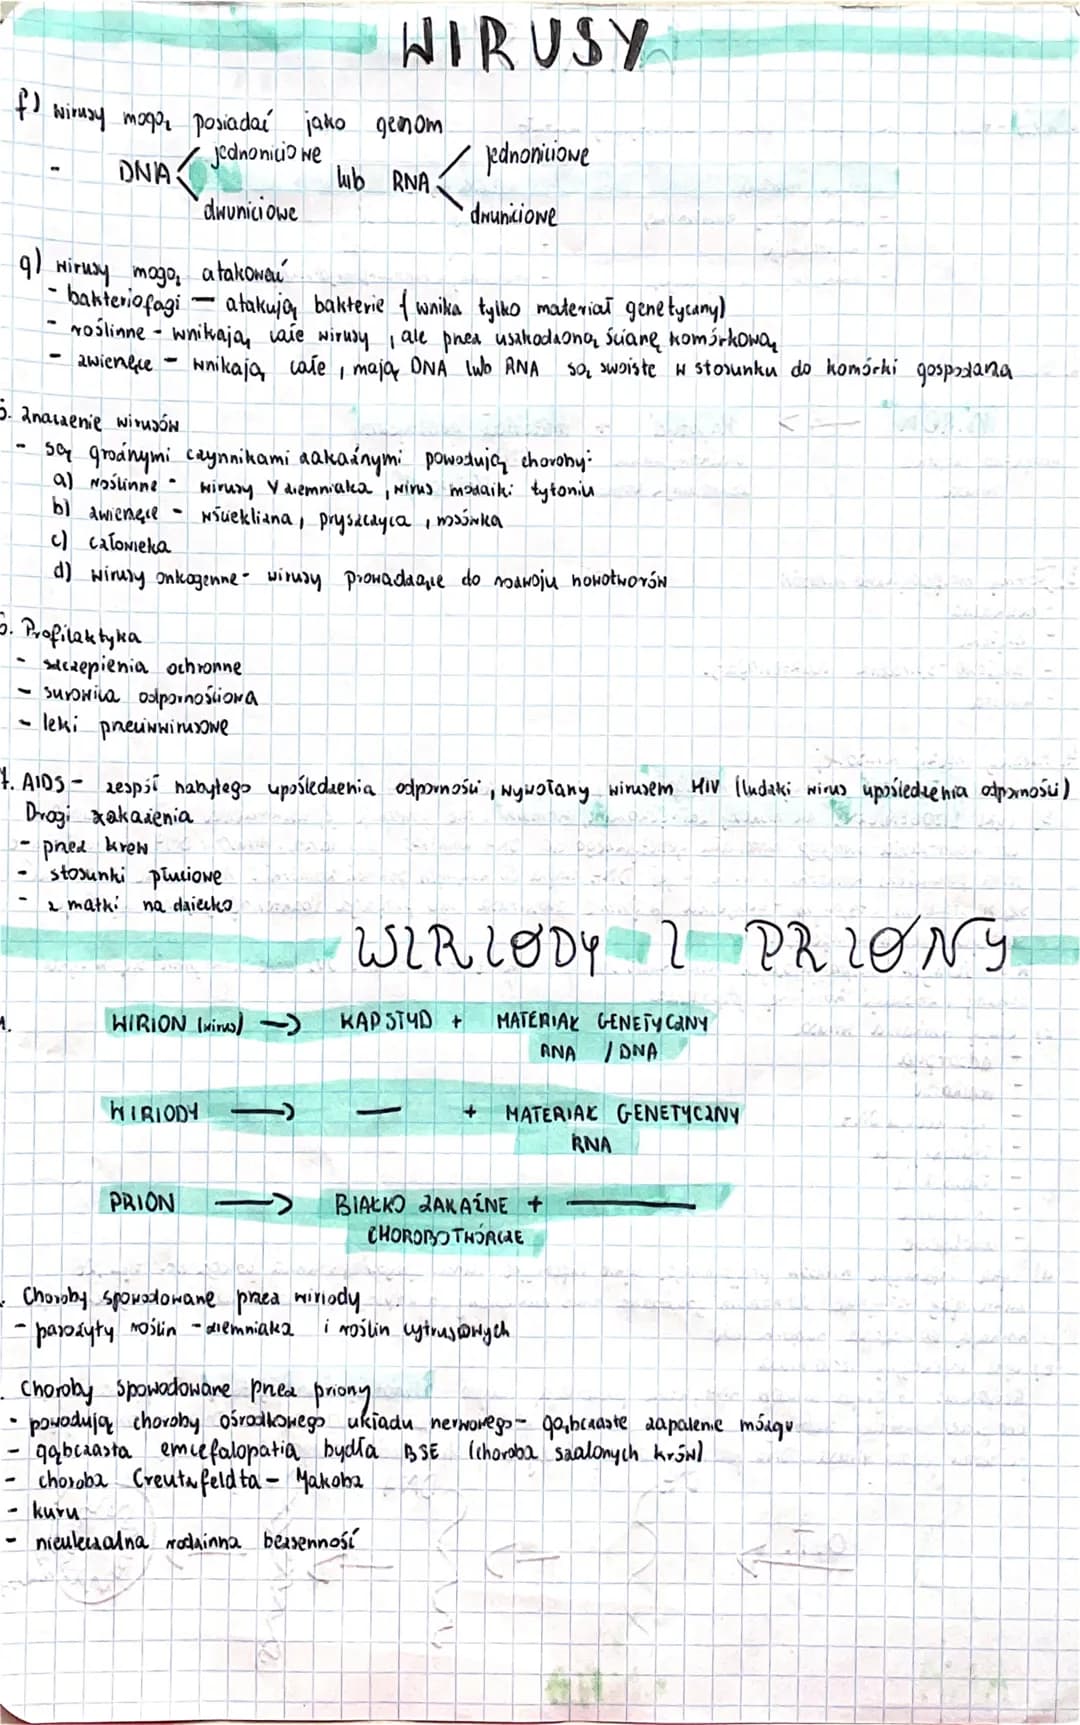 WIRUSY
f) wirusy mogą posiadać jako genom
- DNA jednoniciowe dwuniciowe lub RNA jednoniciowe dwuniciowe
g) wirusy mogą atakować
- bakteriofagi — atakują bakterie (wnika tylko materiał genetyczny)
- roślinne - wnikają całe wirusy, ale przez uszkodzoną ścianę komórkową
- zwierzęce - wnikają całe, mają DNA lub RNA są swoiste w stosunku do komórki gospodarza
5. Znaczenie wirusów
- są groźnymi czynnikami zakaźnymi powodują choroby:
a) roślinne - wirusy Y ziemniaka, wirus mozaiki tytoniu
b) zwierzęce - wścieklizna, pryszczyca, nosówka
c) człowieka
d) wirusy onkogenne - wirusy prowadzące do rozwoju nowotworów
6. Profilaktyka
- szczepienia ochronne
- surowica odpornościowa
- leki przeciwwirusowe
7. AIDS - zespół nabytego upośledzenia odporności, wywołany wirusem HIV (ludzki wirus upośledzenia odporności)
Drogi zakażenia
- przez krew
- stosunki płciowe
- z matki na dziecko
WIRIODY I PRIONY
1. WIRION (wirus) → KAPSTYD + MATERIAŁ GENETYCZNY
RNA / DNA
WIRIODY → — + MATERIAŁ GENETYCZNY
RNA
PRION → BIAŁKO ZAKAŹNE + —
CHOROBOTWÓRCZE
. Choroby spowodowane przez wiriody
- pasożyty roślin - ziemniaka i roślin cytrusowych
. Choroby spowodowane przez priony
- powodują choroby ośrodkowego układu nerwowego - gąbczaste zapalenie mózgu
- gąbczasta emcefalopatia bydła BSE (choroba szalonych krów)
- choroba Creutzfeldta - Jakoba
- kuru
- nieuleczalna rodzinna bezsenność